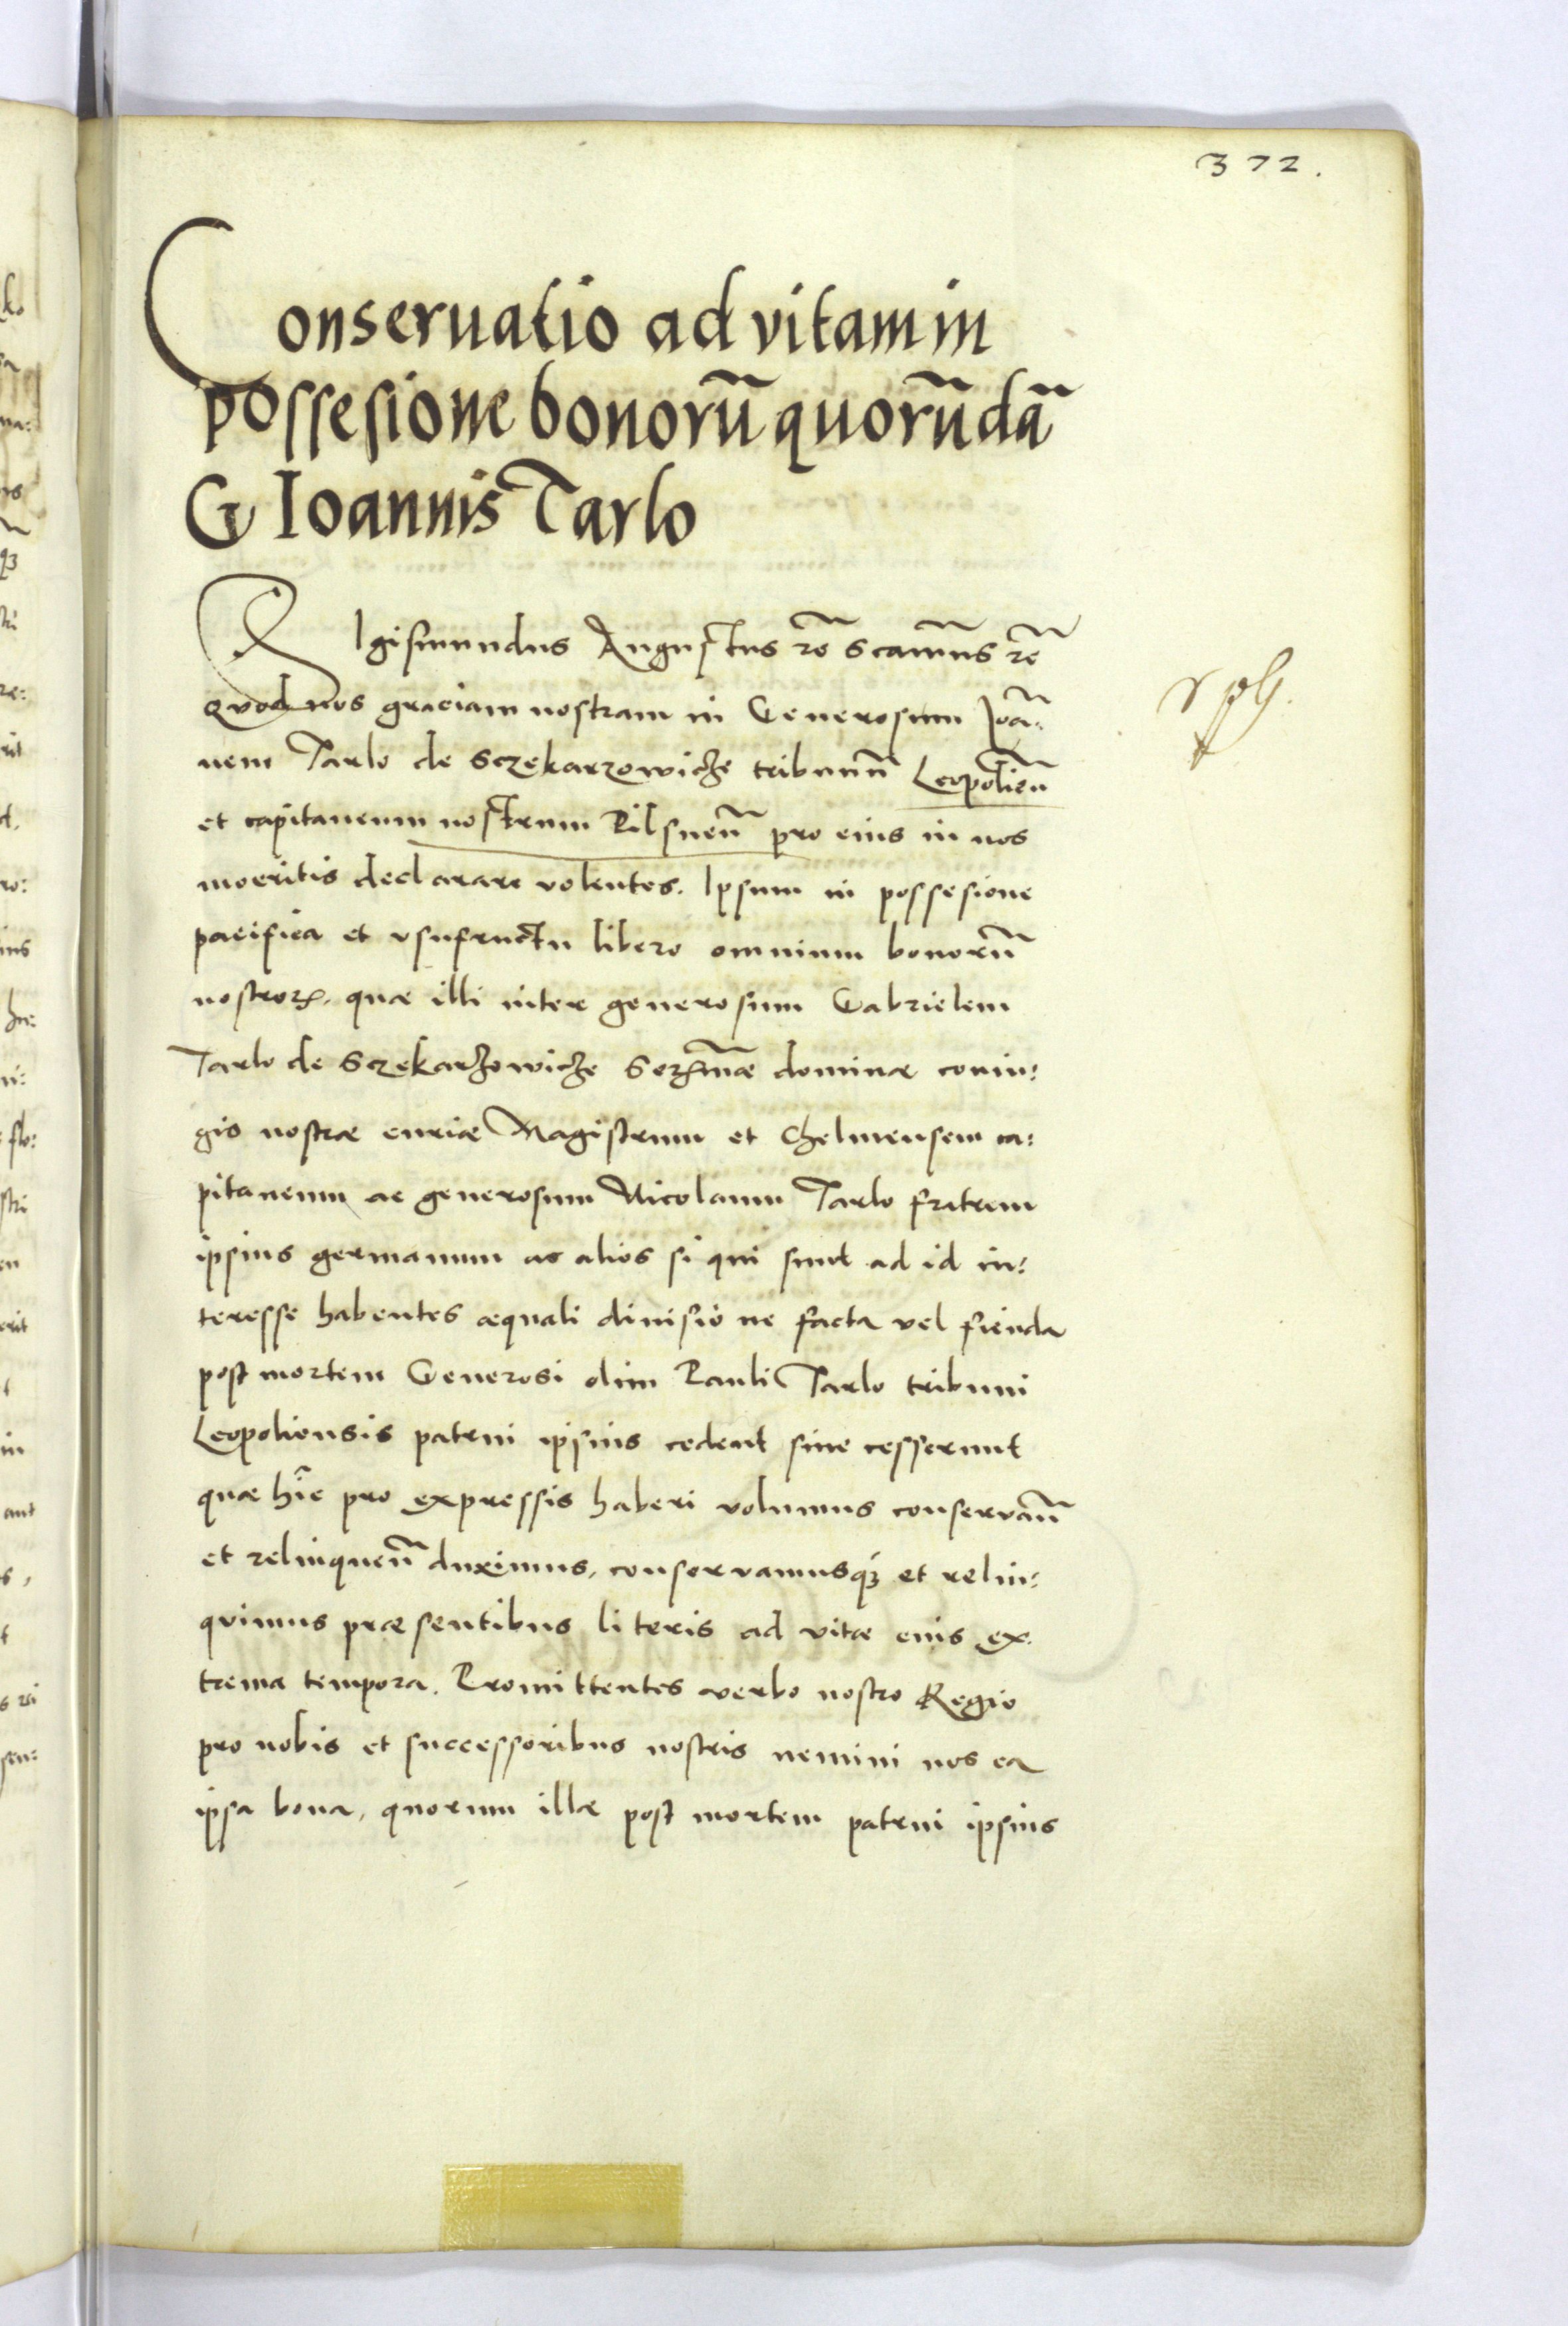 372.
Conseruatio ad vitam in
possesione bonorū quorūdā
G Ioannis Tarlo
SIgismundus Augustus rē Scammus rē
Quod nos graciam nostram in Generosum Ioā:
nem Tarlo de Sczekarzowicze tribunū Leopolieñ
et capitaneum nostrum Pilsneñ pro eius in nos
moeritis declarare volentes. Ipsum in possesione
pacifica et vsufructu libero omnium bonorū
nostroꝝ, quæ illi inter generosum Gabrielem
Tarlo de Sczekarzowicze Serᵐæ dominæ coniu:
gis nostræ curiæ Magistrum et Chelmensem ca:
pitaneum ac generosum Nicolaum Tarlo fratrem
ipsius germanum ac alios si qui sunt ad id in:
teresse habentes æquali diuisione facta vel fienda
post mortem Generosi olim Pauli Tarlo tribuni
Leopoliensis patrui ipsius cedent siue cesserunt
quæ hīc pro expressis haberi volumus conservañ
et relinqueñ duximus, conservamusqꝫ et relin:
quimus præsentibus literis ad vitæ eius ex:
trema tempora. Promittentes verbo nostro Regio
pro nobis et successoribus nostris nemini nos ea
ipsa bona, quorum illæ post mortem patrui ipsius